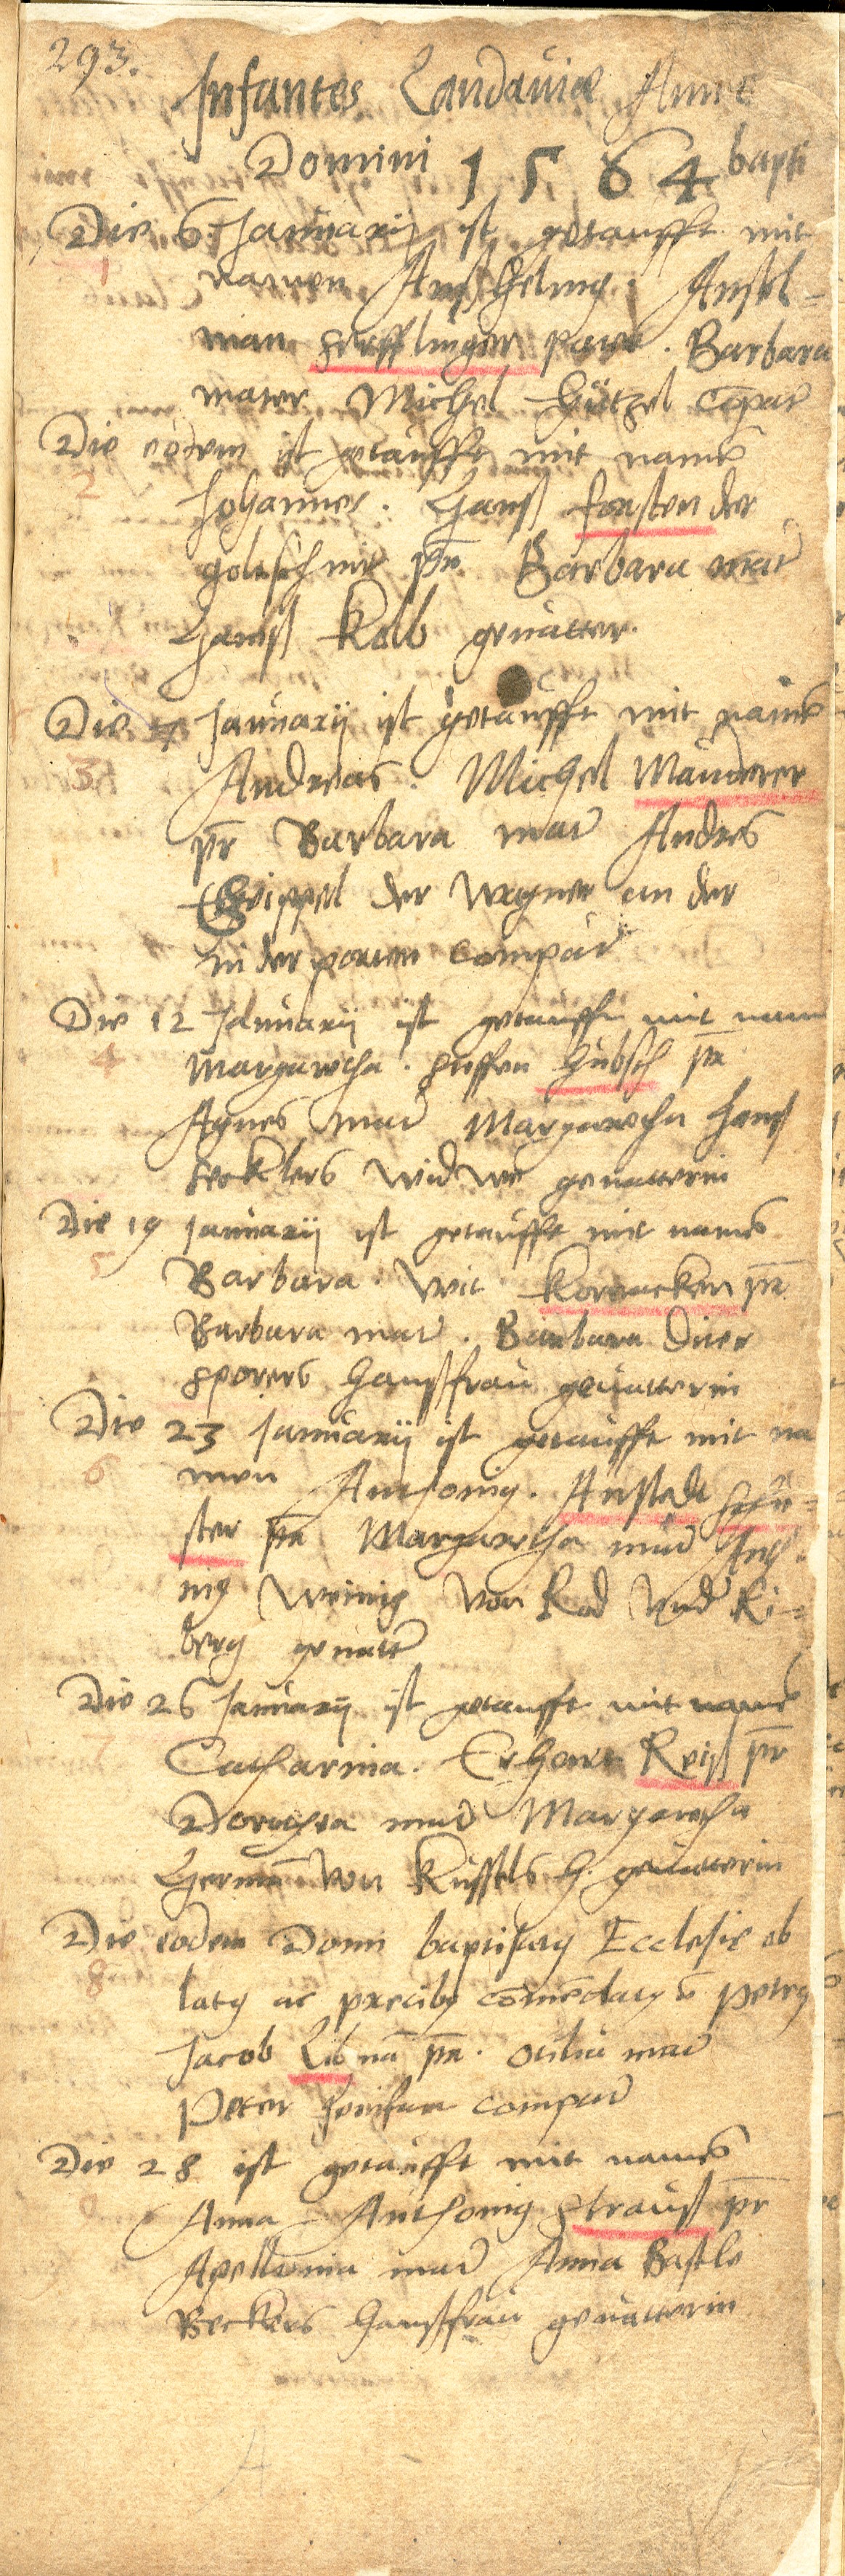 293.
Infantes Landaviæ Anno
Domini 1564 bapti
Die 6 Januarij ist getaufft mit
1
namen Anßhelmy. Anßel-
man pare. Barbara
mater Michel Hützel cōpat
Die eodem ist getaufft mit name
2
Johannes. Hanß forsten der
goltschmit pr Barbara mat
Hanß Kolb gevatter.
Die 7 Januarij ist getaufft mit name
3
Andreas. Michel Mauderer
pr Barbara mat Andres
der Wagner an der
nider porten compat
Die 12 Januarij ist getaufft mit nam
4
Margaretha. steffen Hübsch pr
Agnes mat Margaretha Hanß
Hecklers widwe gevatterin
Die 19 Januarij ist getaufft mit name
5
Barbara. Wit pr
Barbara mat. Barbara Diter
sporers Haußfrau gevatterin
Die 23 Januarij ist getaufft mit na
6
men Anthonig. Anstadt schu-
ster pr Margaretha mat Antho-
nig Weinig von Rod und Ri-
berg gevatt
Die 26 Januarij ist getaufft mit name
7
Catharina. Erhart Reiß pr
Dorothea mat Margaretha
German von H. gevatterin
Die eodem Domi baptisaty Ecclesie ob
8
laty ac preciby comēdaty ē Petrus
Jacob pr. Otilia mat
Peter compat
Die 28 ist getaufft mit name
Anna Anthonig Strauß pr
Apollonia mat Anna Bastle
Beckers Haußfrau gevatterin